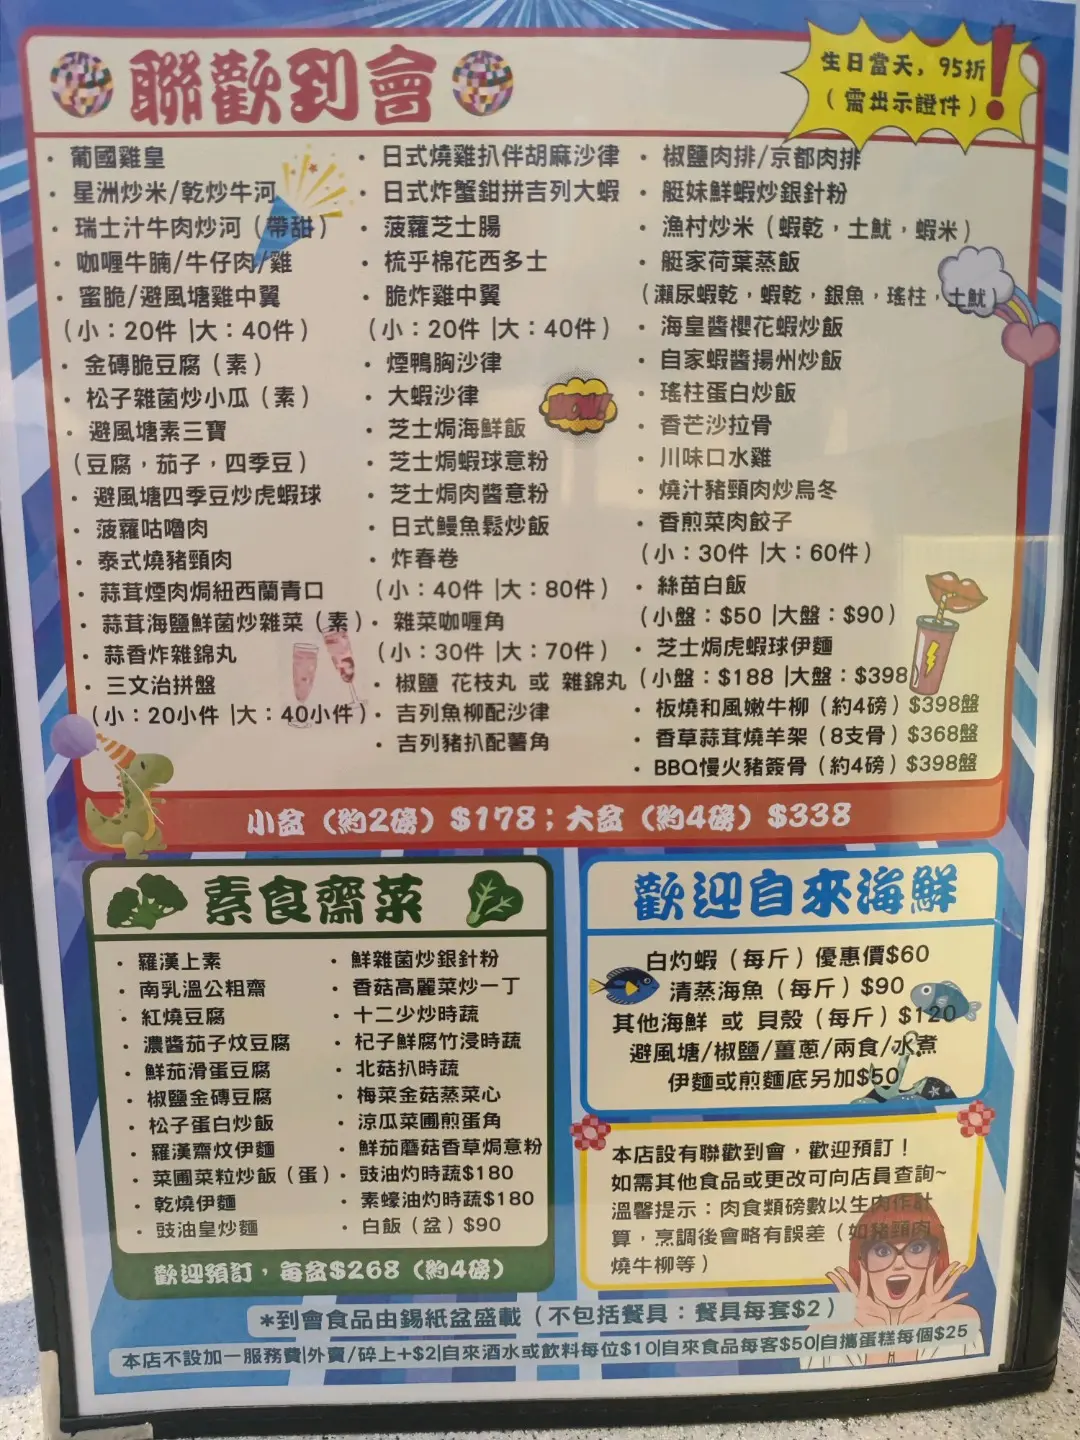 聯歡到會
生日當天，95折
（需出示證件）！
· 葡國雞皇
· 星洲炒米/乾炒牛河
· 瑞士汁牛肉炒河（帶甜）
· 咖喱牛腩/牛仔肉/雞
· 蜜脆/避風塘雞中翼
（小：20件 |大：40件）
· 金磚脆豆腐（素）
· 松子雜菌炒小瓜（素）
· 避風塘素三寶
（豆腐，茄子，四季豆）
· 避風塘四季豆炒虎蝦球
· 菠蘿咕嚕肉
· 泰式燒豬頸肉
· 蒜茸煙肉焗紐西蘭青口
· 蒜茸海鹽鮮菌炒雜菜（素）
· 蒜香炸雜錦丸
· 三文治拼盤
（小：20小件 |大：40小件）
· 日式燒雞扒伴胡麻沙律
· 日式炸蟹鉗拼吉列大蝦
· 菠蘿芝士腸
· 梳乎棉花西多士
· 脆炸雞中翼
（小：20件 |大：40件）
· 煙鴨胸沙律
· 大蝦沙律
· 芝士焗海鮮飯
· 芝士焗蝦球意粉
· 芝士焗肉醬意粉
· 日式鰻魚鬆炒飯
· 炸春卷
（小：40件 |大：80件）
· 雜菜咖喱角
（小：30件 |大：70件）
· 椒鹽 花枝丸 或 雜錦丸
· 吉列魚柳配沙律
· 吉列豬扒配薯角
WOW!
· 椒鹽肉排/京都肉排
· 艇妹鮮蝦炒銀針粉
· 漁村炒米（蝦乾，土魷，蝦米）
· 艇家荷葉蒸飯
（瀨尿蝦乾，蝦乾，銀魚，瑤柱，土魷）
· 海皇醬櫻花蝦炒飯
· 自家蝦醬揚州炒飯
· 瑤柱蛋白炒飯
· 香芒沙拉骨
· 川味口水雞
· 燒汁豬頸肉炒烏冬
· 香煎菜肉餃子
（小：30件 |大：60件）
· 絲苗白飯
（小盤：$50 |大盤：$90）
· 芝士焗虎蝦球伊麵
（小盤：$188 |大盤：$398）
· 板燒和風嫩牛柳（約4磅）$398盤
· 香草蒜茸燒羊架（8支骨）$368盤
· BBQ慢火豬簽骨（約4磅）$398盤
小盆（約2磅）$178；大盆（約4磅）$338
素食齋菜
· 羅漢上素
· 南乳溫公粗齋
· 紅燒豆腐
· 濃醬茄子炆豆腐
· 鮮茄滑蛋豆腐
· 椒鹽金磚豆腐
· 松子蛋白炒飯
· 羅漢齋炆伊麵
· 菜圃菜粒炒飯（蛋）
· 乾燒伊麵
· 豉油皇炒麵
· 鮮雜菌炒銀針粉
· 香菇高麗菜炒一丁
· 十二少炒時蔬
· 杞子鮮腐竹浸時蔬
· 北菇扒時蔬
· 梅菜金菇蒸菜心
· 涼瓜菜圃煎蛋角
· 鮮茄蘑菇香草焗意粉
· 豉油灼時蔬$180
· 素蠔油灼時蔬$180
· 白飯（盆）$90
歡迎預訂，每盆$268（約4磅）
歡迎自來海鮮
白灼蝦（每斤）優惠價$60
清蒸海魚（每斤）$90
其他海鮮 或 貝殼（每斤）$120
避風塘/椒鹽/薑蔥/兩食/水煮
伊麵或煎麵底另加$50
本店設有聯歡到會，歡迎預訂！
如需其他食品或更改可向店員查詢~
溫馨提示：肉食類磅數以生肉作計
算，烹調後會略有誤差（如豬頸肉、
燒牛柳等）
*到會食品由錫紙盆盛載（不包括餐具：餐具每套$2）
本店不設加一服務費|外賣/碎上+$2|自來酒水或飲料每位$10|自來食品每客$50|自攜蛋糕每個$25